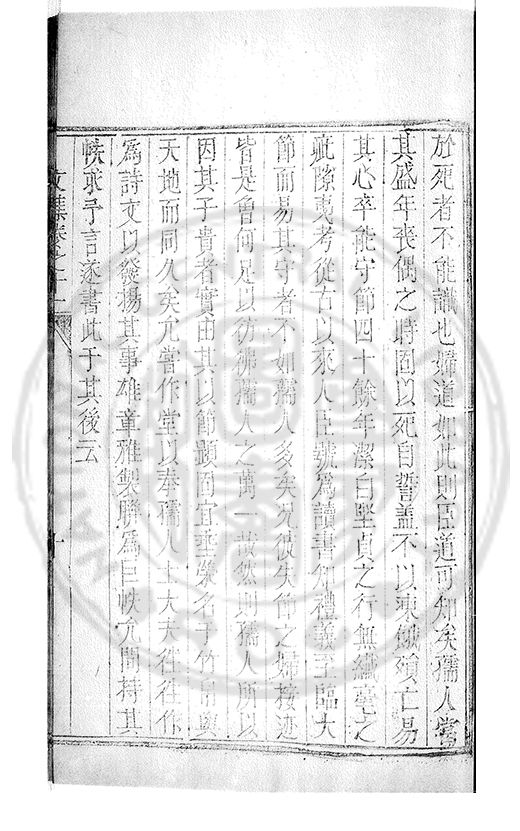 於死者不能讖也婦道如此則臣道可知矣孺人當
其盛年喪偶之時固以死自誓蓋不以凍餓殞亡易
其心卒能守節四十餘年潔白堅貞之行無纖毫之
疵隙夷考從古以來人臣號為讀書知禮義至臨大
節而易其守者不如孺人多矣况彼失節之婦接迹
皆是曾何足以彷彿孺人之萬一哉然則孺人所以
因其子貴者實由其以節顯固宜垂榮名于竹帛與
天地而同久矣允嘗作堂以奉孺人士大夫徃徃作
為詩文以發揚其事雄章雅製勝為巨帙允間持其
帙求予言遂書此于其後云
文集卷之十一